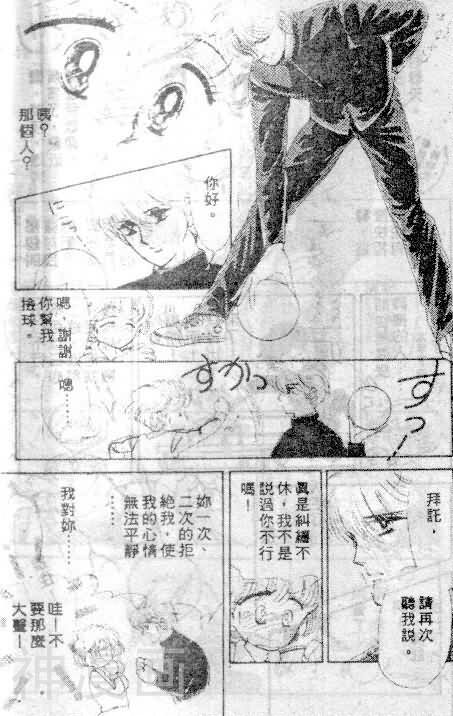 咦？
那個人？
你好。
にこっ
嗯、謝謝
你幫我
撿球。
すっ！
すかっ
嗯……
拜託，
請再次
聽我說。
真是糾纏不
休，我不是
說過你不行
嗎！
妳一次、
二次的拒
絕我，使
我的心情
無法平靜
……
我對妳……
哇！不
要那麼
大聲！